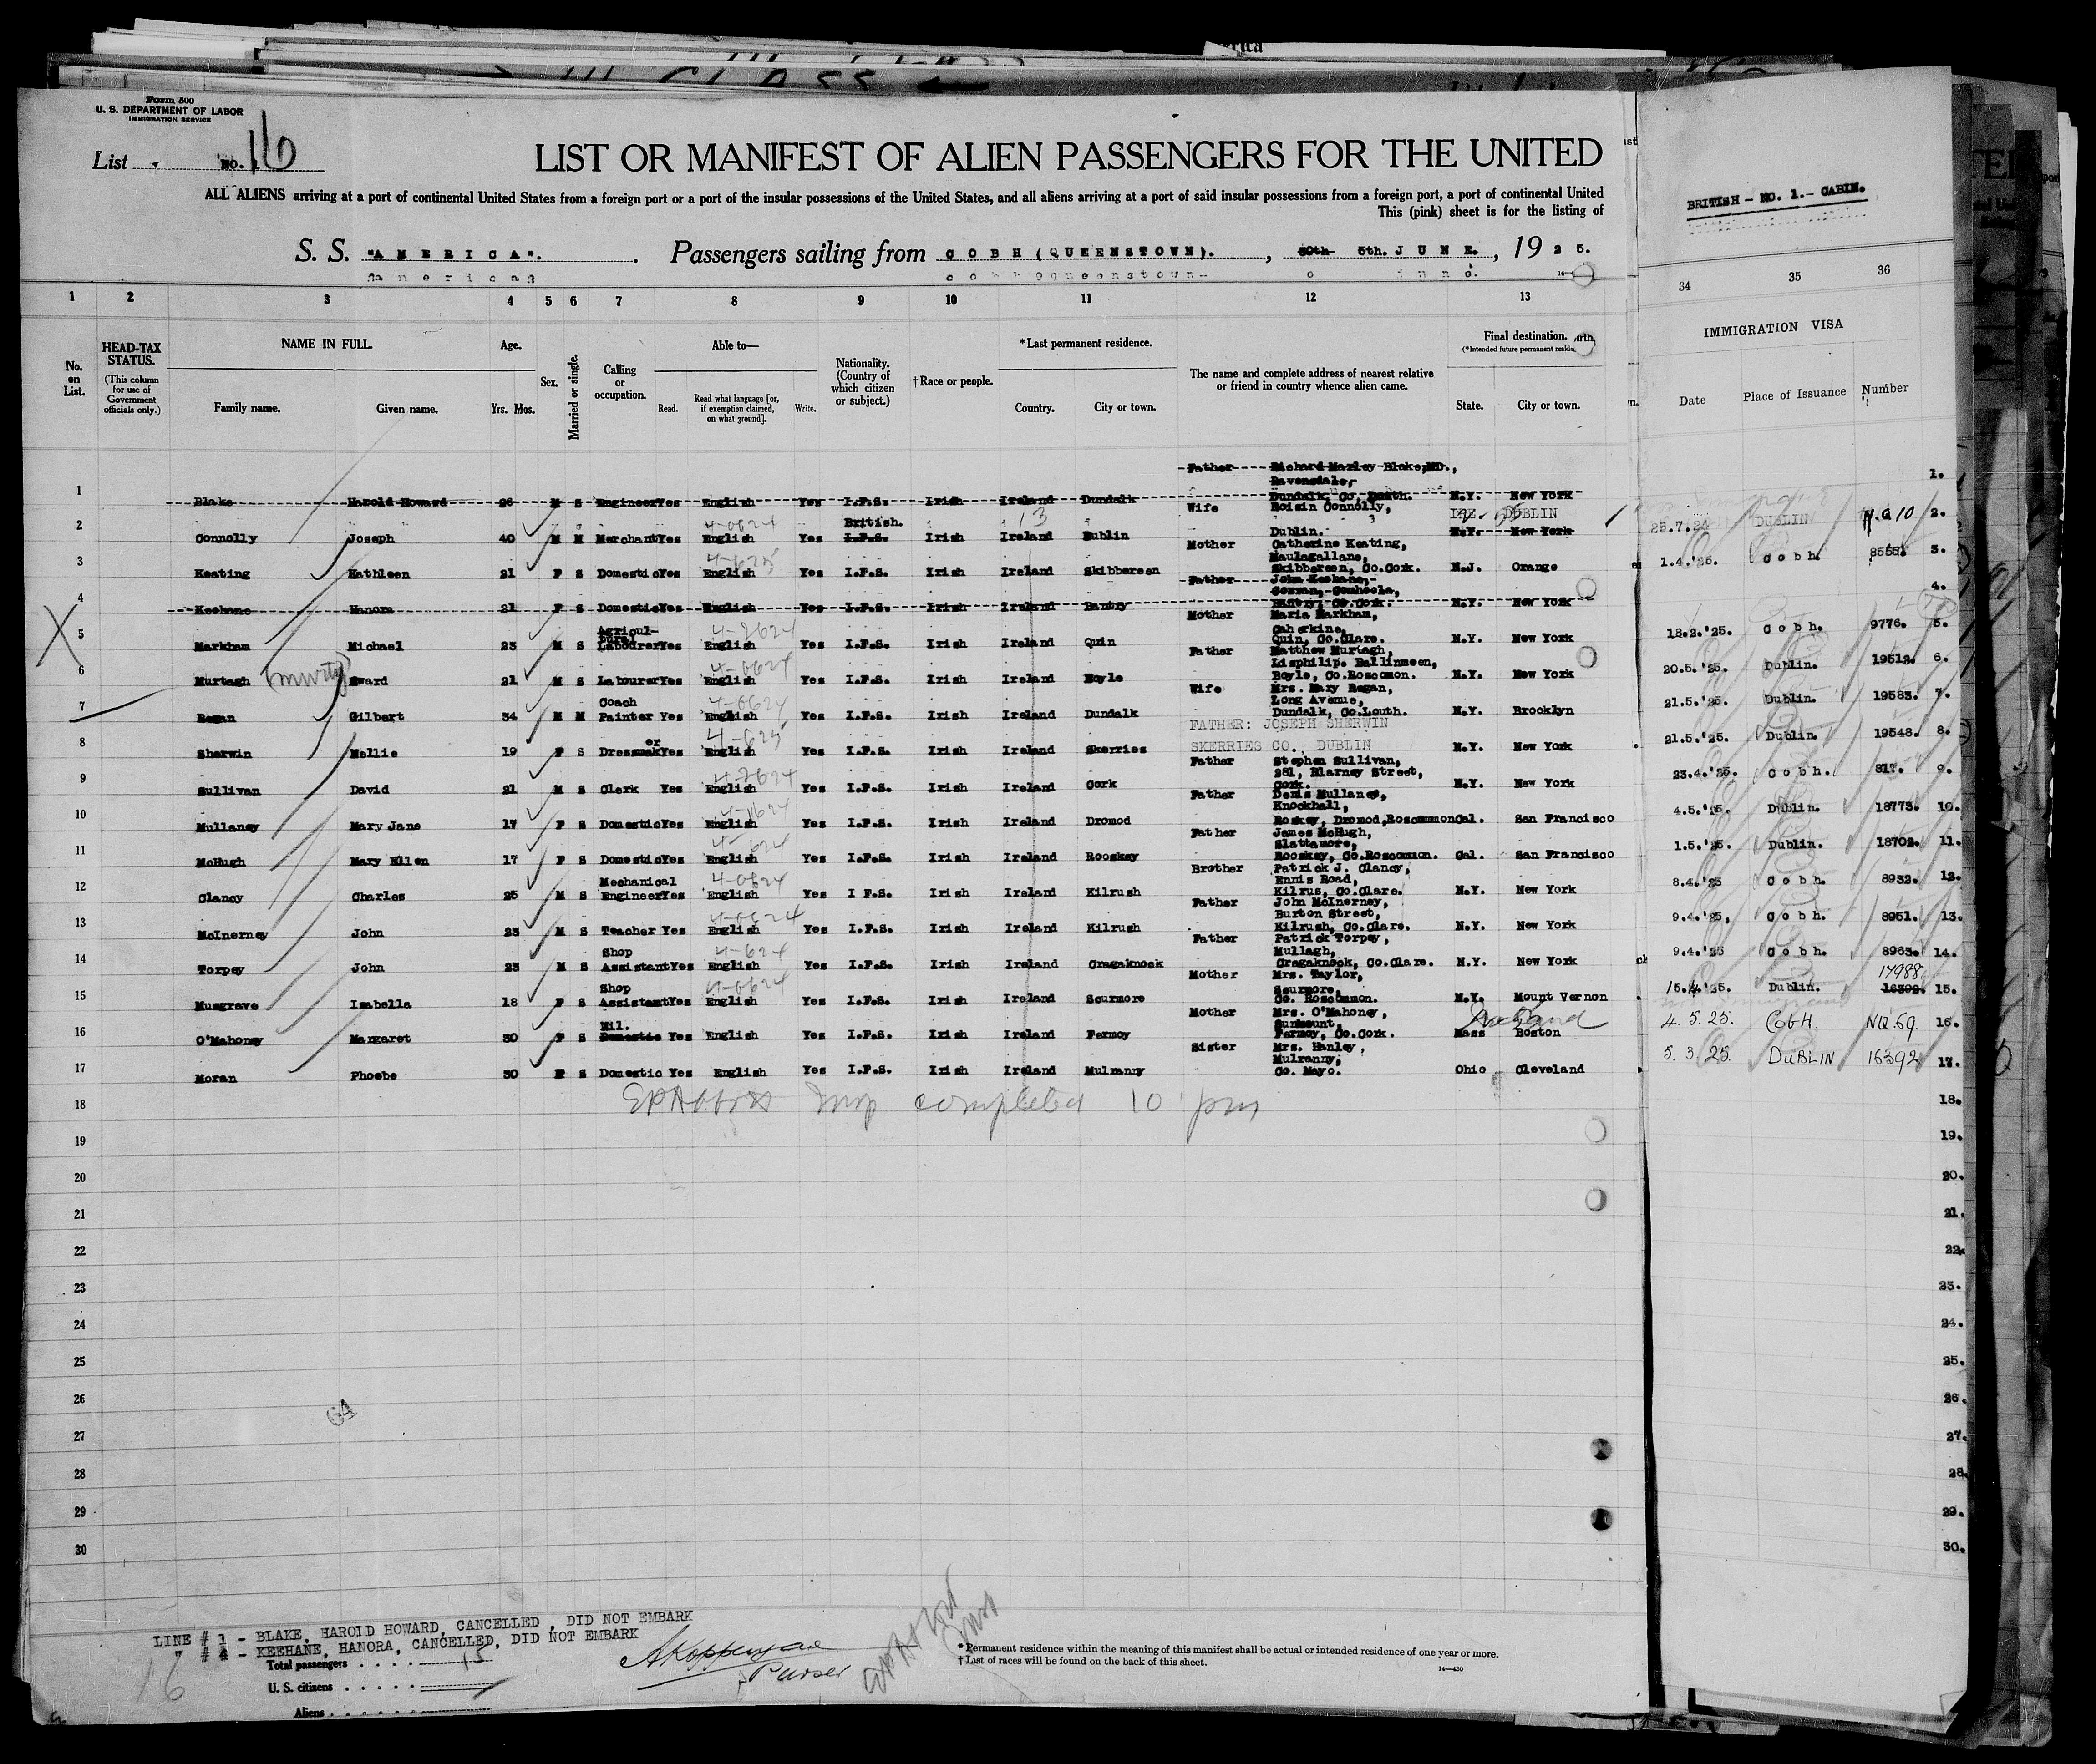 Form 500
U. S. DEPARTMENT OF LABOR
IMMIGRATION SERVICE
List NO. 16
LIST OR MANIFEST OF ALIEN PASSENGERS FOR THE UNITED
ALL ALIENS arriving at a port of continental United States from a foreign port or a port of the insular possessions of the United States, and all aliens arriving at a port of said insular possessions from a foreign port, a port of continental United
This (pink) sheet is for the listing of
S. S. "AMERICA". Passengers sailing from COBH (QUEENSTOWN). , 5th. JUNE. , 19 2 5.
BRITISH - NO. 1.- CABIN.
1 2 3 4 5 6 7 8 9 10 11 12 13 34 35 36
No. on List.
HEAD-TAX STATUS.
(This column for use of Government officials only.)
NAME IN FULL.
Family name. Given name.
Age.
Yrs. Mos.
Sex.
Married or single.
Calling or occupation.
Able to—
Read. Read what language [or, if exemption claimed, on what ground]. Write.
Nationality. (Country of which citizen or subject.)
†Race or people.
*Last permanent residence.
Country. City or town.
The name and complete address of nearest relative or friend in country whence alien came.
Final destination.
(*Intended future permanent
State. City or town.
IMMIGRATION VISA
Date Place of Issuance Number
1 Blake Harold Howard 26 M S Engineer Yes English Yes I.F.S. Irish Ireland Dundalk Father Richard Marley Blake, MD., Ravensdale, Dundalk, Co. Louth. N.Y. New York 1.
2 Connolly Joseph 40 M M Merchant Yes 4-0624 English Yes British. I.F.S. Irish Ireland 13 Dublin Wife Roisin Connolly, Dublin. IRE DUBLIN N.Y. New York 25.7.24 DUBLIN N.Q 10 2.
3 Keating Kathleen 21 F S Domestic Yes 4-625 English Yes I.F.S. Irish Ireland Skibbereen Mother Catherine Keating, Maulagallane, Skibbereen, Co.Cork. N.J. Orange 1.4.'25. Cobh 3.
4 Keehane Hanora 21 F S Domestic Yes English Yes I.F.S. Irish Ireland Bantry Father John Keehane, Bantry, Co.Cork. N.Y. New York 4.
5 Markham Michael 23 M S Agricultural Labourer Yes 4-2624 English Yes I.F.S. Irish Ireland Quin Mother Maria Markham, Caherkine, Quin, Co.Clare. N.Y. New York 18.2.'25. Cobh. 9776. 5.
6 Murtagh (Murty) Edward 21 M S Labourer Yes 4-0624 English Yes I.F.S. Irish Ireland Boyle Father Matthew Murtagh, Lisphilip. Ballinmeen, Boyle, Co.Roscomon. N.Y. New York 20.5.'25. Dublin. 19512. 6.
7 Regan Gilbert 34 M M Coach Painter Yes 4-0624 English Yes I.F.S. Irish Ireland Dundalk Wife Mrs. Mary Regan, Long Avenue, Dundalk, Co.Louth. N.Y. Brooklyn 21.5.'25. Dublin. 19583. 7.
8 Sherwin Nellie 19 F S Dressmaker Yes 4-625 English Yes I.F.S. Irish Ireland Skerries FATHER: JOSEPH SHERWIN SKERRIES CO., DUBLIN N.Y. New York 21.5.'25. Dublin. 19548. 8.
9 Sullivan David 21 M S Clerk Yes 4-2624 English Yes I.F.S. Irish Ireland Cork Father Stephen Sullivan, 281, Blarney Street, Cork. N.Y. New York 23.4.'25. Cobh. 817. 9.
10 Mullaney Mary Jane 17 F S Domestic Yes 4-1624 English Yes I.F.S. Irish Ireland Dromod Father Denis Mullaney, Knockhall, Roskey, Dromod, Roscommon Cal. San Francisco 4.5.'25. Dublin. 18773. 10.
11 McHugh Mary Ellen 17 F S Domestic Yes 4-624 English Yes I.F.S. Irish Ireland Rooskey Father James McHugh, Slattamore, Rooskey, Co.Roscommon. Cal. San Francisco 1.5.'25. Dublin. 18702. 11.
12 Clancy Charles 25 M S Mechanical Engineer Yes 4-0624 English Yes I F.S. Irish Ireland Kilrush Brother Patrick J. Clancy, Ennis Road, Kilrus, Co.Clare. N.Y. New York 8.4.'25 Cobh. 8932. 12.
13 McInerney John 23 M S Teacher Yes 4-0624 English Yes I.F.S. Irish Ireland Kilrush Father John McInerney, Burton Street, Kilrush, Co.Clare. N.Y. New York 9.4.'25, Cobh. 8951. 13.
14 Torpey John 23 M S Shop Assistant Yes 4-624 English Yes I.F.S. Irish Ireland Cragaknock Father Patrick Torpey, Mullagh, Cragaknock, Co.Clare. N.Y. New York 9.4.'25 Cobh. 8963. 14.
15 Musgrave Isabella 18 F S Shop Assistant Yes 4-0624 English Yes I.F.S. Irish Ireland Scurmore Mother Mrs. Taylor, Scurmore, Co. Roscommon. N.Y. Mount Vernon 15.4.'25. Dublin. 17988 16392. 15.
16 O'Mahoney Margaret 30 F S Nil. Domestic Yes English Yes I.F.S. Irish Ireland Fermoy Mother Mrs. O'Mahoney, Fermoy, Co.Cork. Mass Boston 4.5.25. CobH NQ.69. 16.
17 Moran Phoebe 30 F S Domestic Yes English Yes I.F.S. Irish Ireland Mulranny Sister Mrs. Hanley, Mulranny, Co. Mayo. Ohio Cleveland 5.3.25. DUBLIN 16392 17.
18 Insp completed 10 pm 18.
19 19.
20 20.
21 21.
22 22.
23 23.
24 24.
25 25.
26 26.
27 27.
28 28.
29 29.
30 30.
64
LINE # 1 - BLAKE, HAROLD HOWARD, CANCELLED, DID NOT EMBARK
" # 4 - KEEHANE, HANORA, CANCELLED, DID NOT EMBARK
Total passengers . . . . 15
U. S. citizens . . . . .
Aliens . . . . . . .
16
Purser
* Permanent residence within the meaning of this manifest shall be actual or intended residence of one year or more.
† List of races will be found on the back of this sheet.
14—430